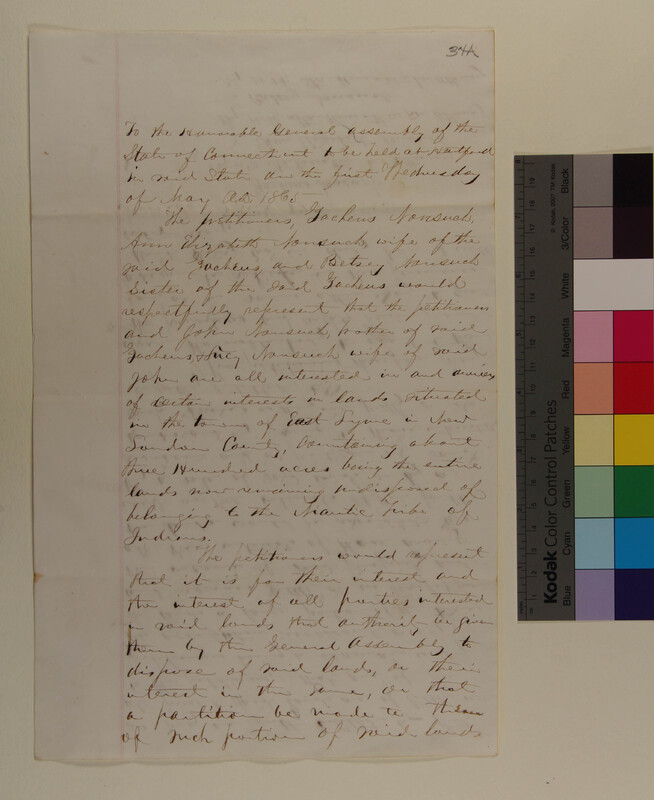 34A
To the Honorable General Assembly of the
State of Connecticut to be held at Hartford
in said State on the first Wednesday
of May AD. 1865
The petitioners, Zacheus Nonsuch,
Ann Elizabeth Nonsuch, wife of the
said Zacheus, and Betsey Nonsuch
Sister of the said Zacheus would
respectfully represent that the petitioners
and John Nonsuch, brother of said
Zacheus, & Nonsuch wife of said
John are all interested in and owners
of certain interests in lands situated
in the town of East Lyme in New
London County, containing about
three Hundred acres being the entire
lands now remaining undisposed of
belonging to the Niantic tribe of
Indians.
The petitioners would represent
that it is for their interest and
the interest of all parties interested
in said lands that authority be given
them by the General Assembly to
dispose of said lands, or their
interest in the same, or that
a partition be made to them
of such portion of said lands
Kodak Color Control Patches
© Kodak, 2007 TM Kodak
Blue
Cyan
Green
Yellow
Red
Magenta
White
3/Color
Black